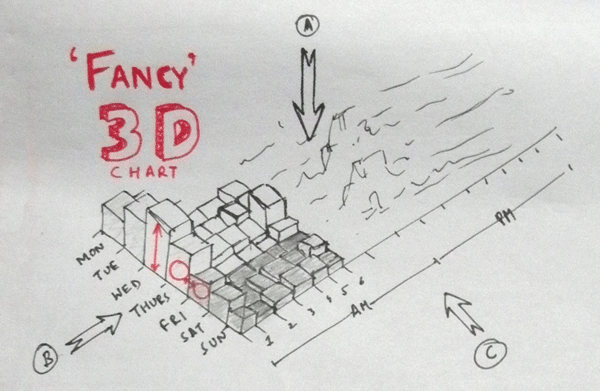 A
'FANCY'
3D
CHART
MON
TUE
WED
THURS
FRI
SAT
SUN
1 2 3 4 5 6
AM
PM
B
C